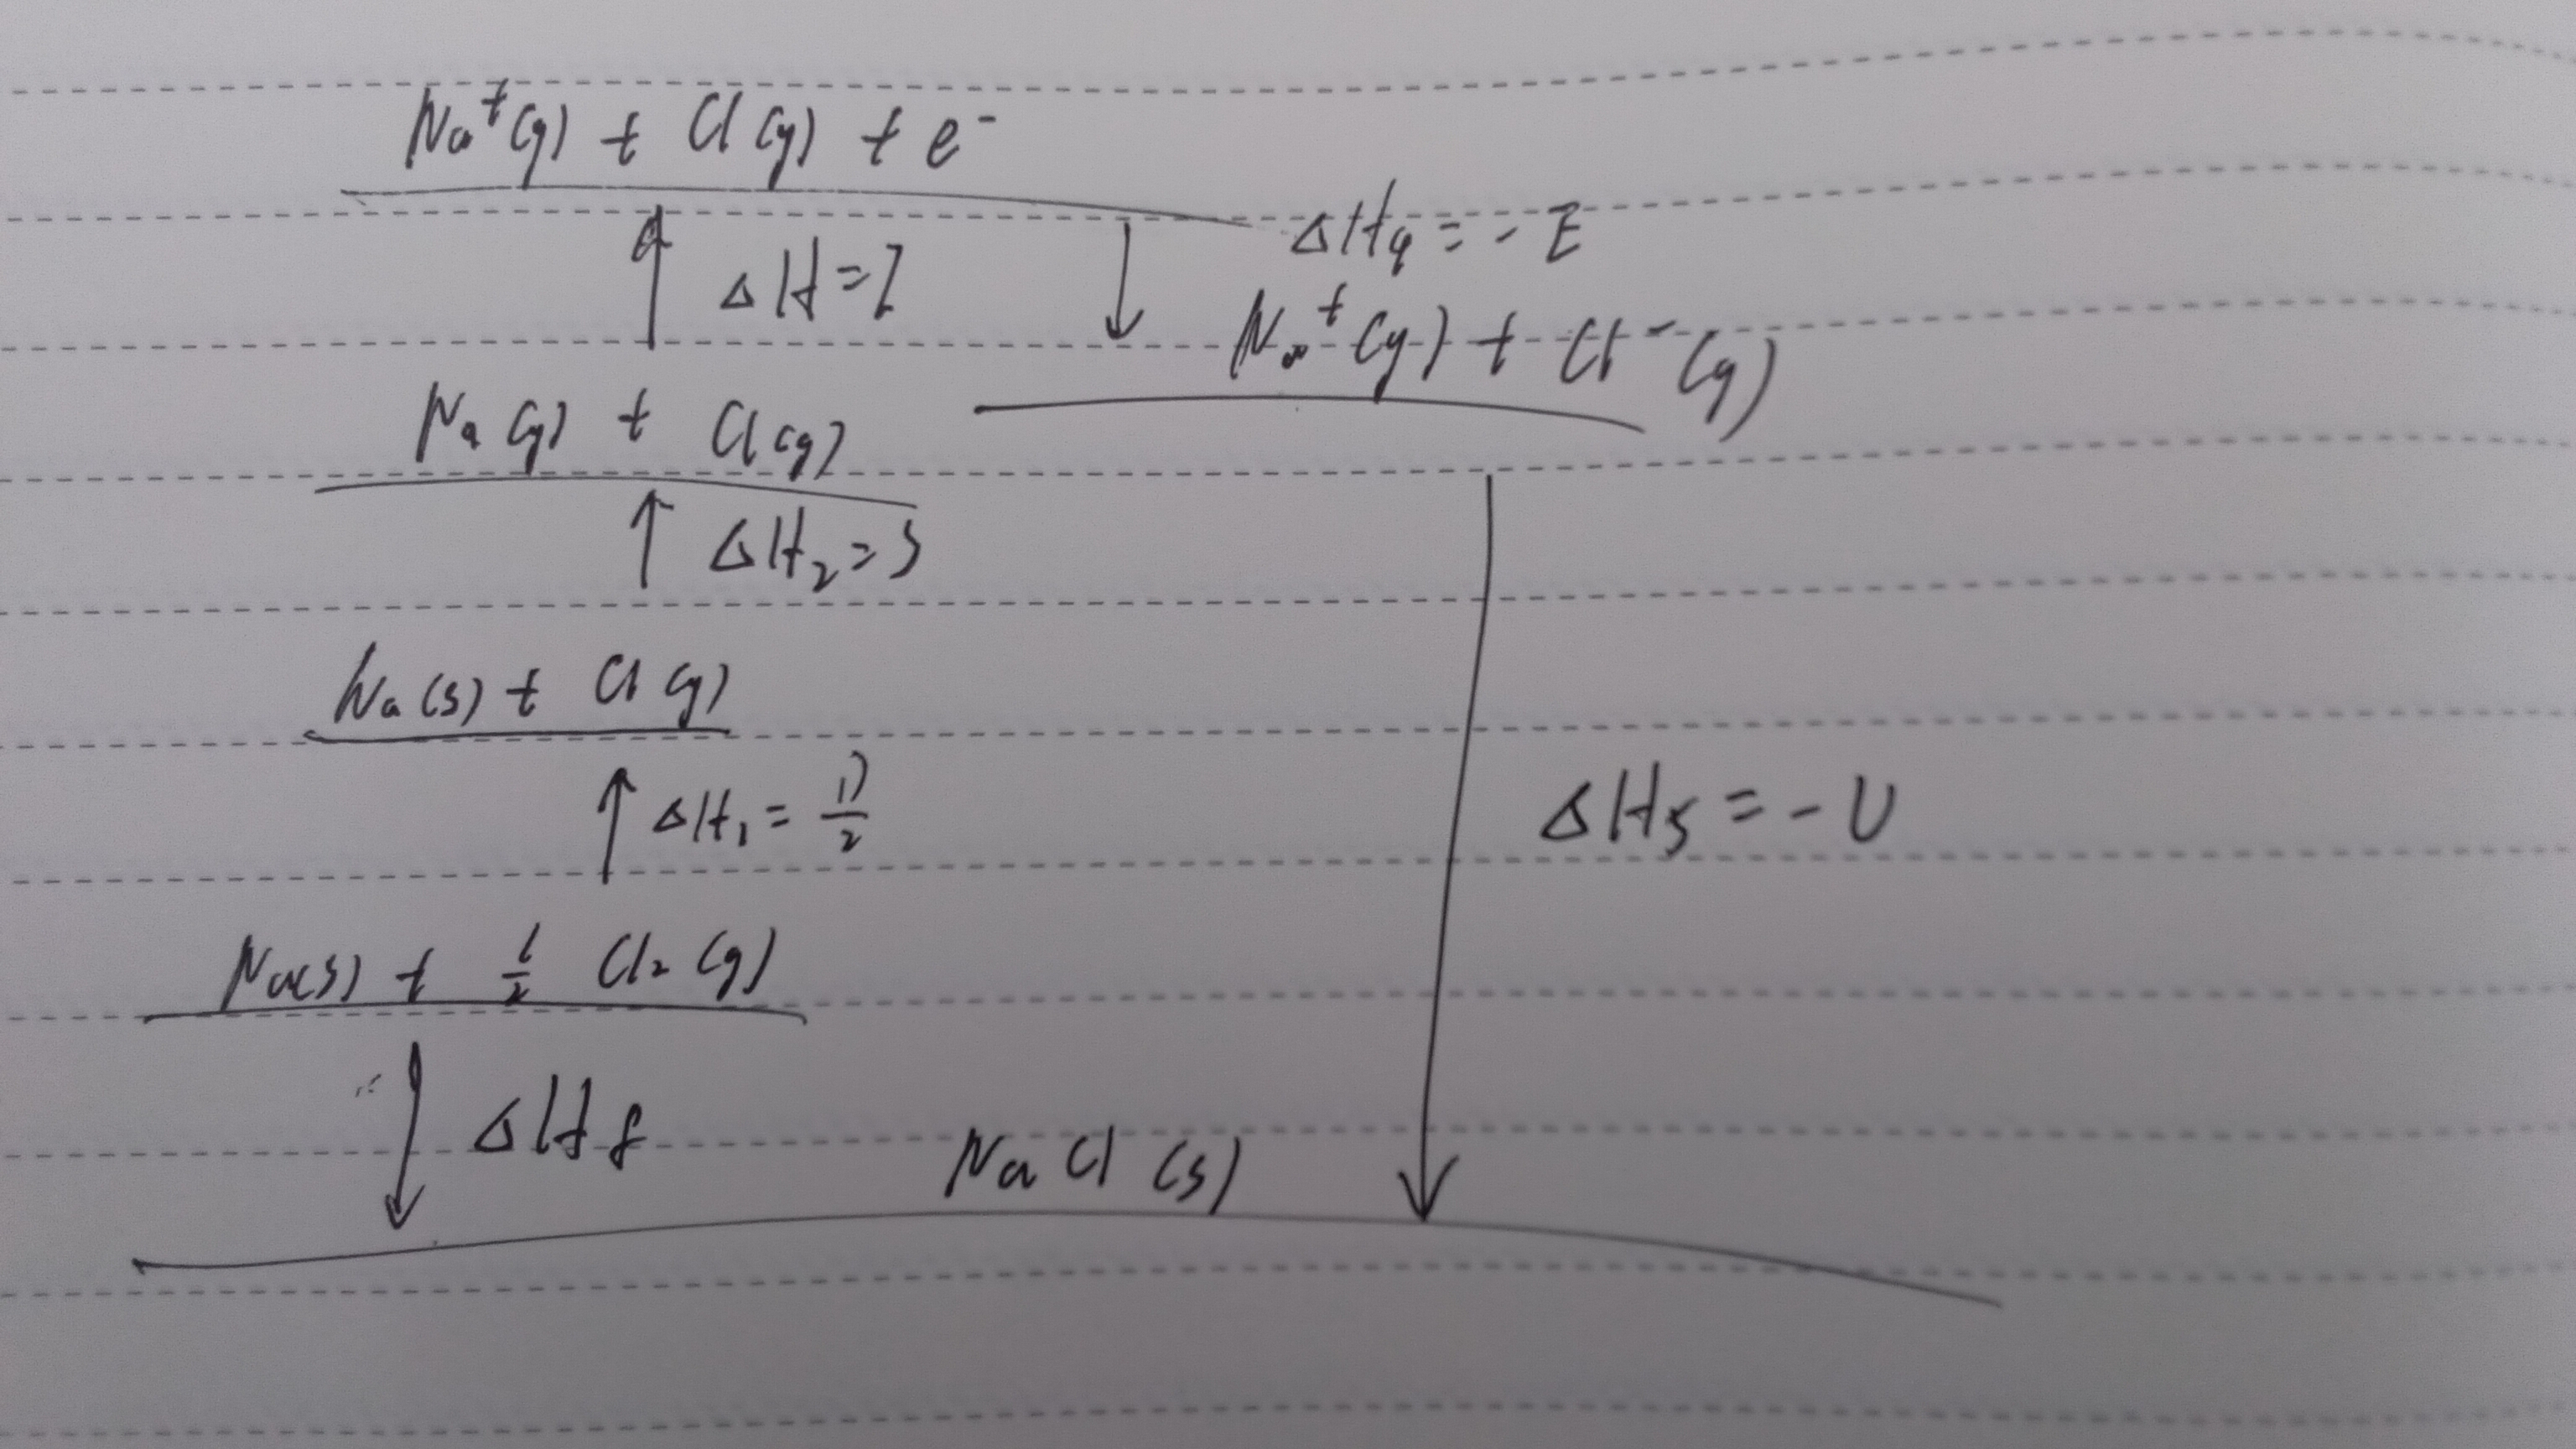 Na⁺(g) + Cl(g) + e⁻
ΔH₄ = -E
ΔH = I
Na⁺(g) + Cl⁻(g)
Na(g) + Cl(g)
ΔH₂ = S
Na(s) + Cl(g)
ΔH₁ = D/2
ΔH₅ = -U
Na(s) + 1/2 Cl₂(g)
ΔHf
NaCl(s)